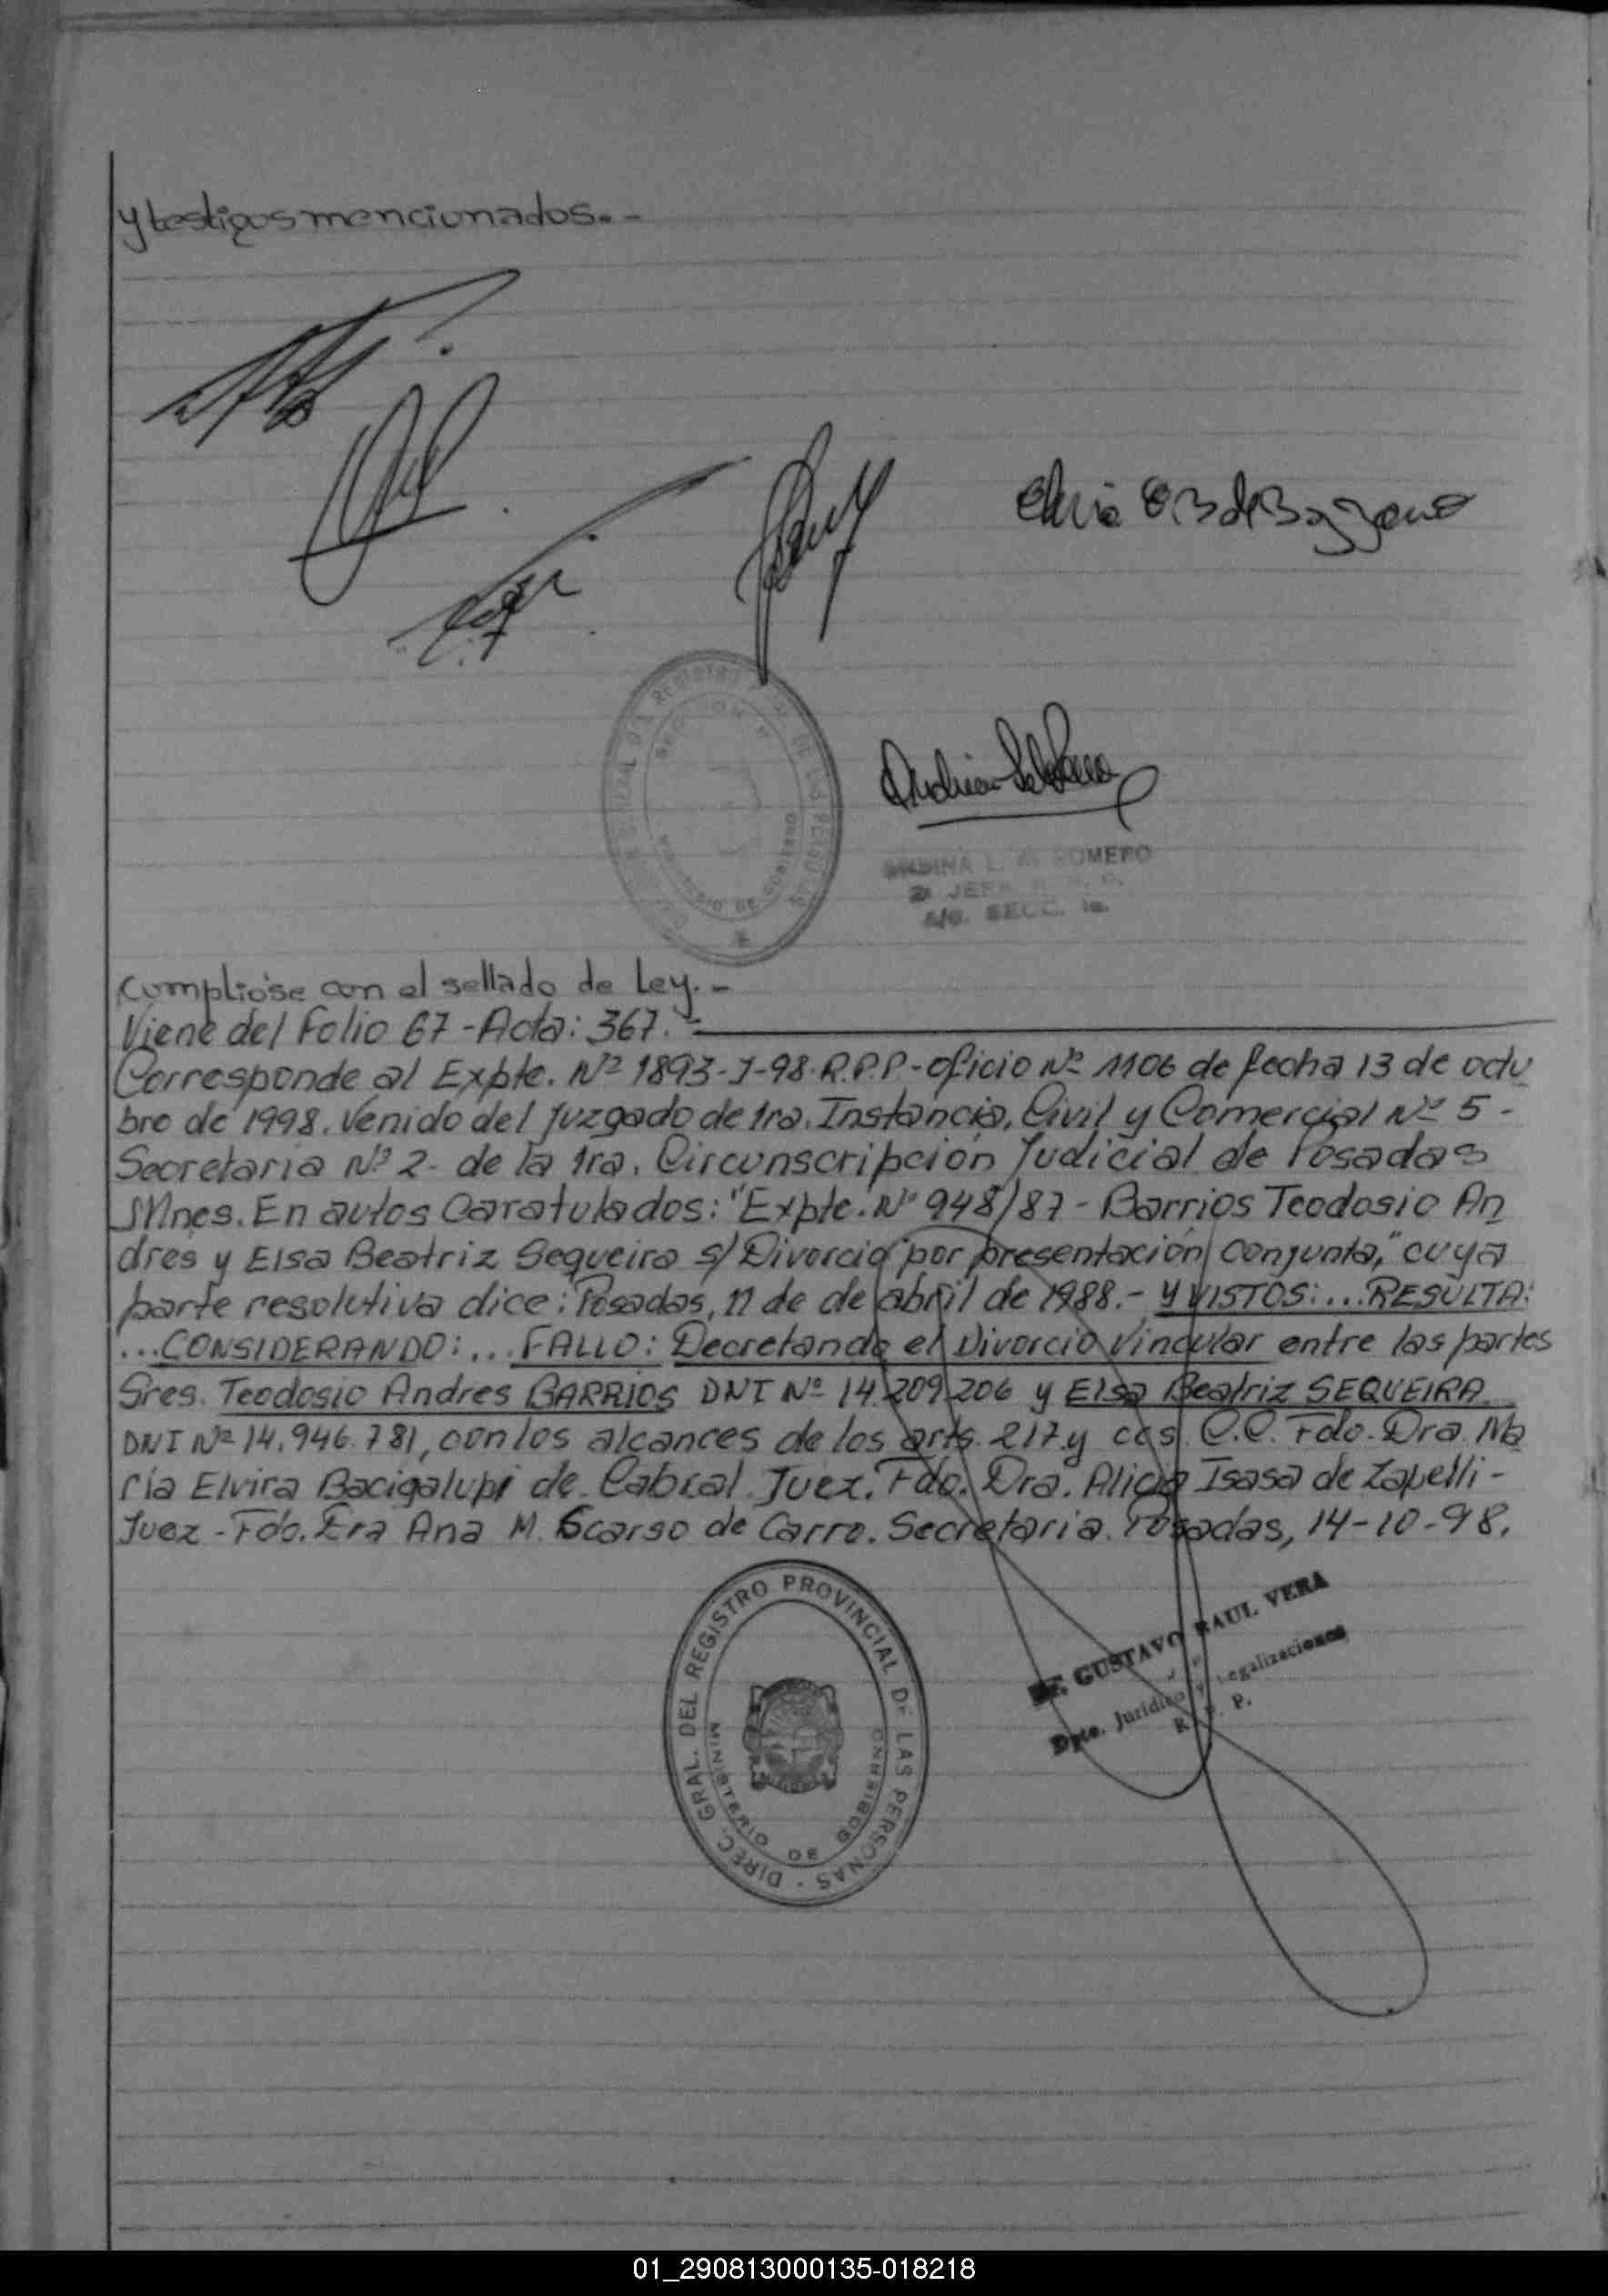 y testigos mencionados.-
Elvia E B de Bazzano
DIREC. GRAL. DEL REGISTRO PROVINCIAL DE LAS PERSONAS
MINISTERIO DE GOBIERNO
L. M. ROMERO
2ª JEFA
A/C. SECC. 1a.
Cumplióse con el sellado de Ley.-
Viene del Folio 67 - Acta: 367.-
Corresponde al Expte. Nº 1893-J-98-R.P.P.-oficio Nº 1106 de fecha 13 de octu
bre de 1998. Venido del Juzgado de 1ra. Instancia, Civil y Comercial Nº 5 -
Secretaria Nº 2- de la 1ra. Circunscripción Judicial de Posadas
Mnes. En autos Caratulados: "Expte. Nº 948/87 - Barrios Teodosio An
drés y Elsa Beatriz Sequeira s/ Divorcio por presentación conjunta," cuya
parte resolutiva dice: Posadas, 11 de de abril de 1988.- Y VISTOS:...RESULTA:
...CONSIDERANDO:...FALLO: Decretando el Divorcio Vincular entre las partes
Sres. Teodosio Andres BARRIOS DNI Nº 14.209.206 y Elsa Beatriz SEQUEIRA
DNI Nº 14.946.781, con los alcances de los arts. 217 y ccs. C.C. Fdo. Dra. Ma
ría Elvira Bacigalupi de Cabral. Juez. Fdo. Dra. Alicia Isasa de Zapelli-
Juez - Fdo. Dra Ana M. Scarso de Carro. Secretaria. Posadas, 14-10-98.
DIREC. GRAL. DEL REGISTRO PROVINCIAL DE LAS PERSONAS
MINISTERIO DE GOBIERNO
Dr. GUSTAVO RAUL VERA
Dpto. Jurídico y Legalizaciones
R. P. P.
01_290813000135-018218